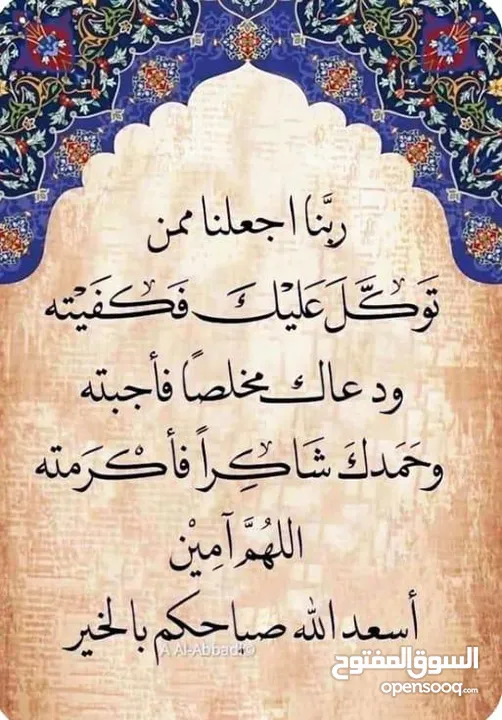 ربَّنا اجعلنا ممن
تَوَكَّلَ عَليْكَ فَكَفَيْته
ودعاك مخلصاً فأجبته
وحَمَدكَ شَاكِراً فأكْرَمته
اللهُمَّ آمِيْن
أسعد الله صباحكم بالخير
A Al-Abbadi©
السوق المفتوح
opensooq.com